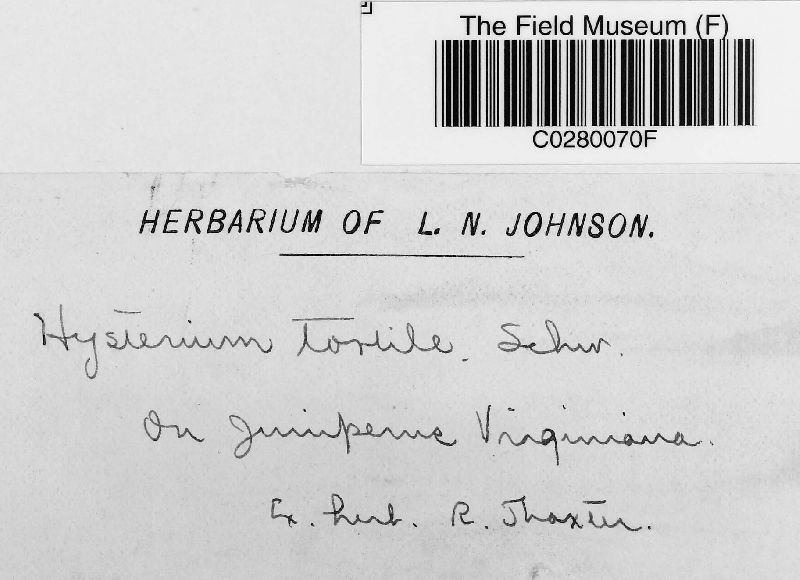 The Field Museum (F)
C0280070F
HERBARIUM OF L. N. JOHNSON.
Hysterium tortile. Schw.
On Juniperus Virginiana.
Ex. herb. R. Thaxter.